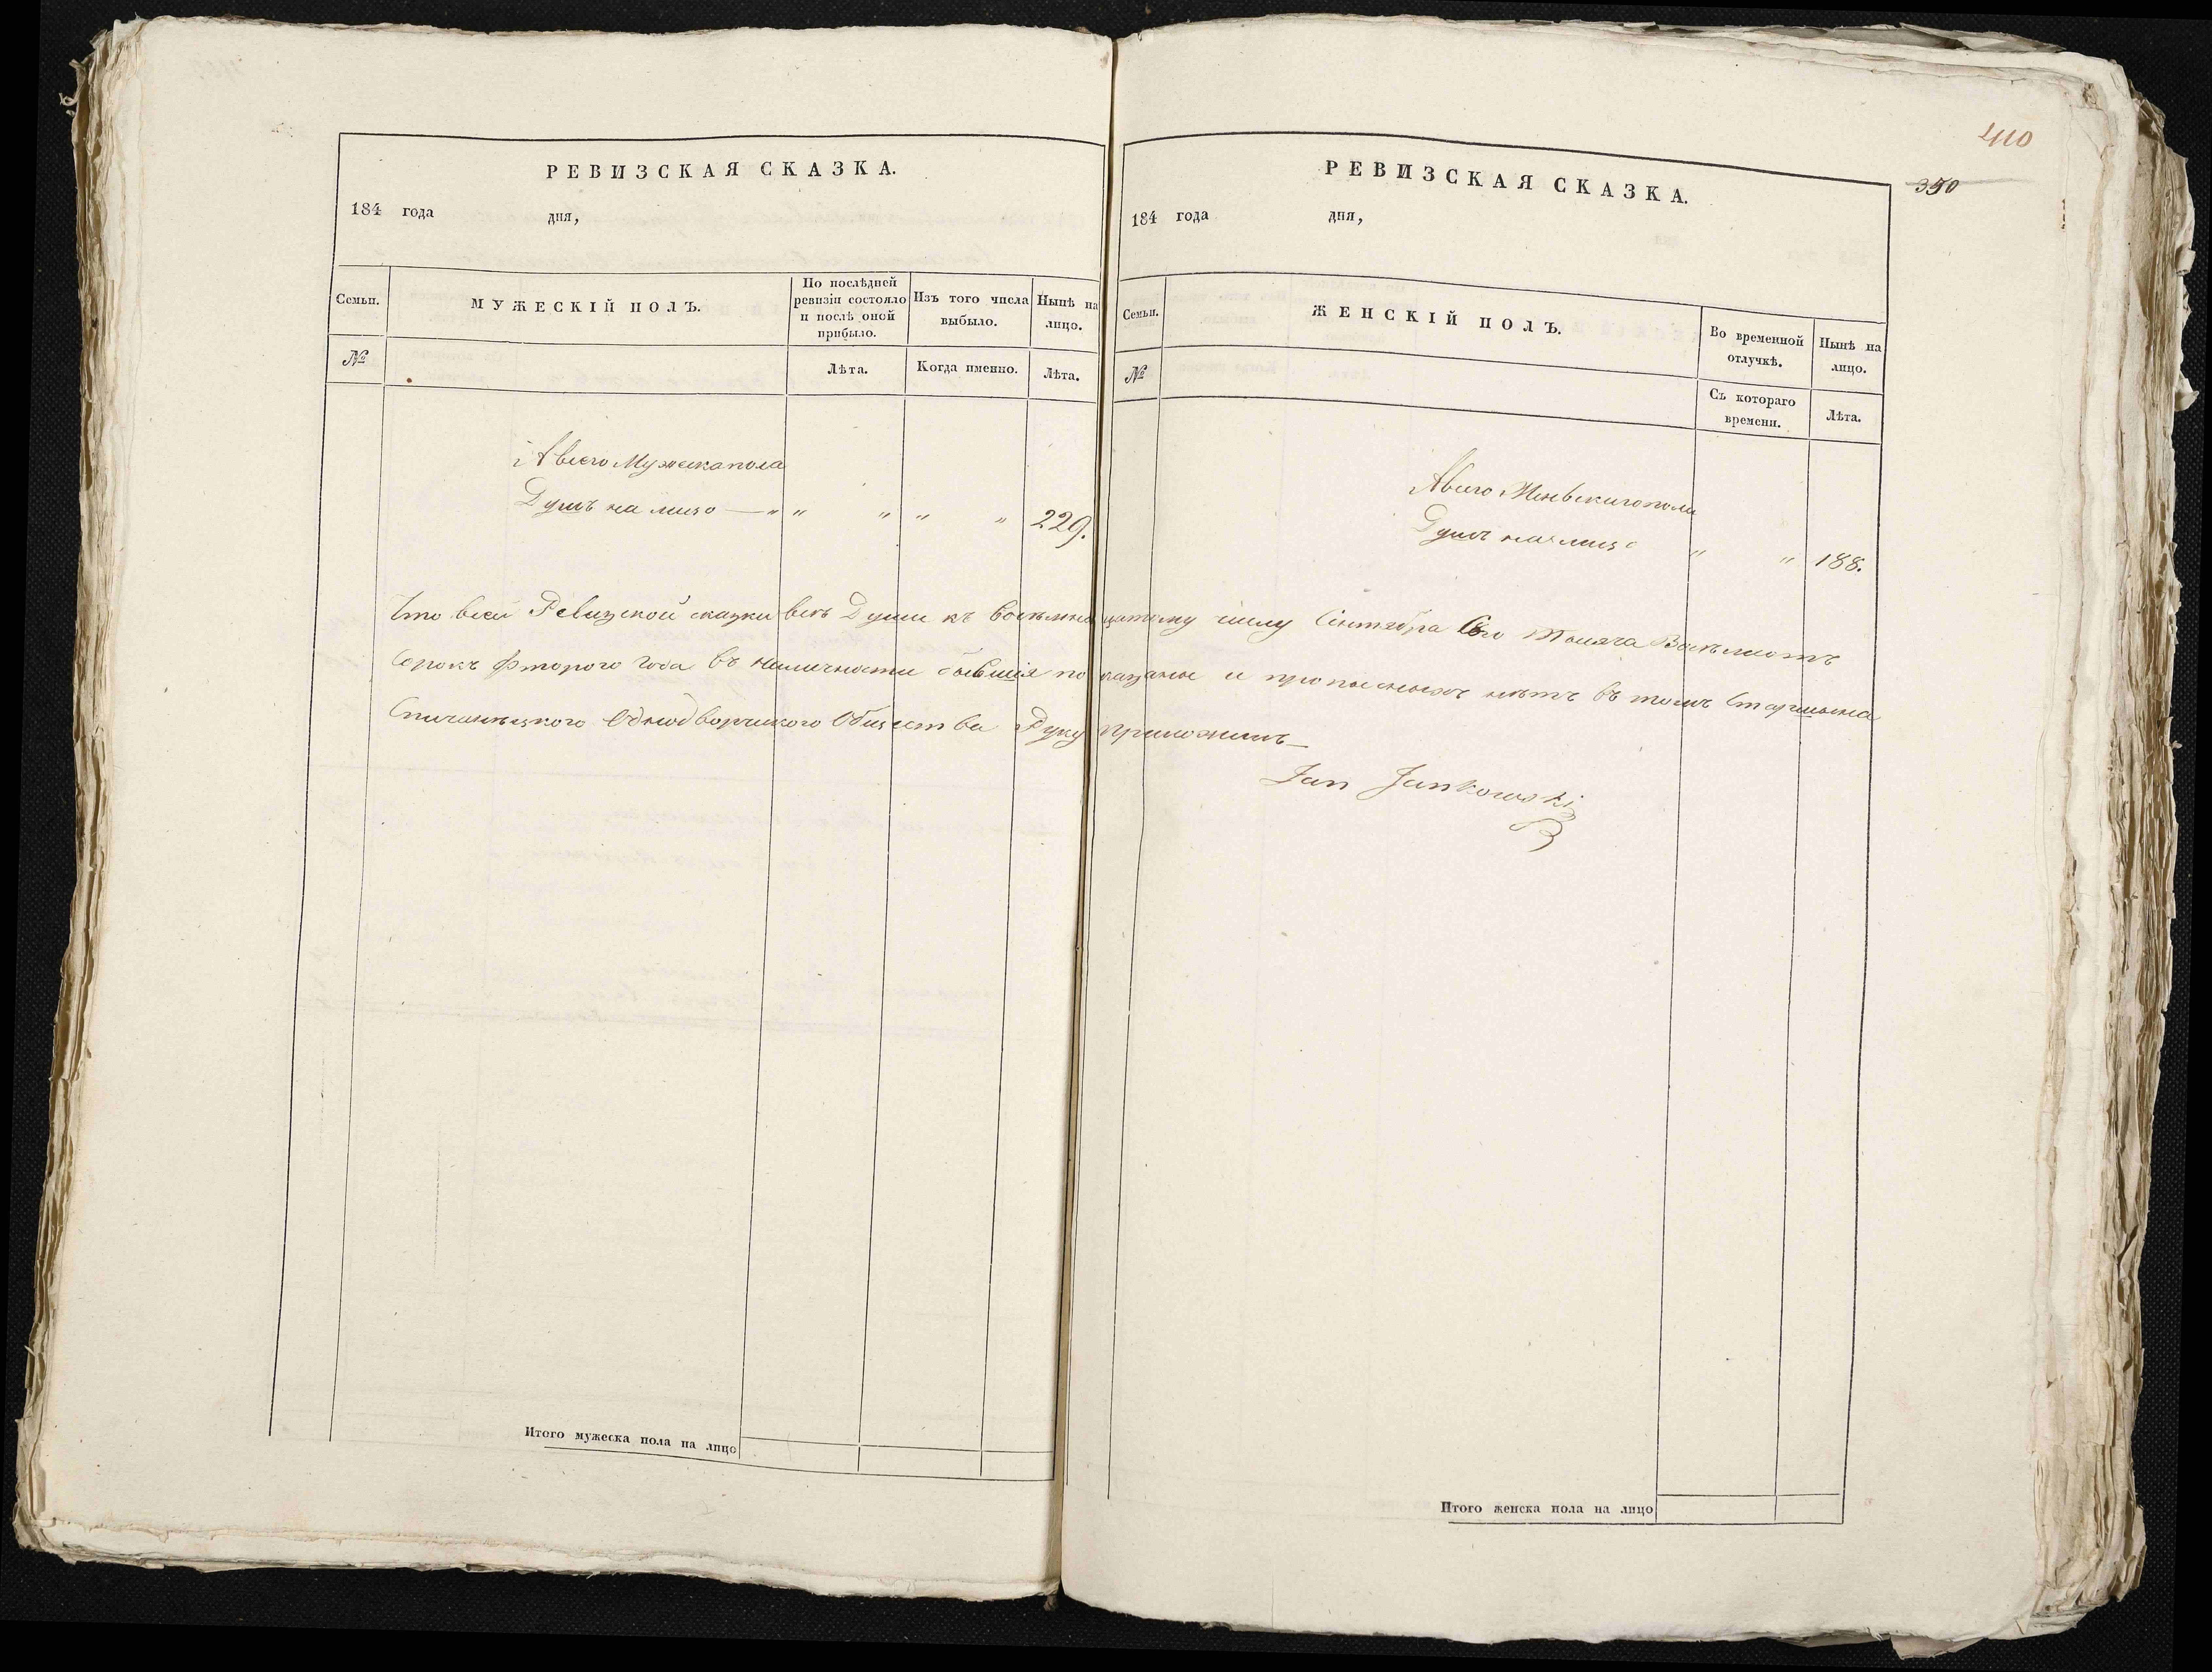 410
350
РЕВИЗСКАЯ СКАЗКА.
184 года дня,
Семьи.
МУЖЕСКІЙ ПОЛЪ.
По послѣдней
ревизіи состояло
и послѣ оной
прибыло.
Изъ того числа
выбыло.
Нынѣ на
лицо.
№
Лѣта.
Когда именно.
Лѣта.
А всего Мужеска пола
Душъ на лицо — " " " " " 229.
РЕВИЗСКАЯ СКАЗКА.
184 года дня,
Семьи.
ЖЕНСКІЙ ПОЛЪ.
Во временной
отлучкѣ.
Нынѣ на
лицо.
№
Съ котораго
времени.
Лѣта.
А всего Женскаго пола
Душъ на лицо " " 188.
Что всей Ревизской сказки всѣ Души къ восьмнадцатому числу Сентября Тысяча Восемьсотъ
Сорокъ фторого года въ наличности бывшія показаные и прописныхъ нѣтъ въ томъ Старшына
Однодворческого Общества Руку приложилъ —
Jan Jankowski
Итого мужеска пола на лицо
Итого женска пола на лицо